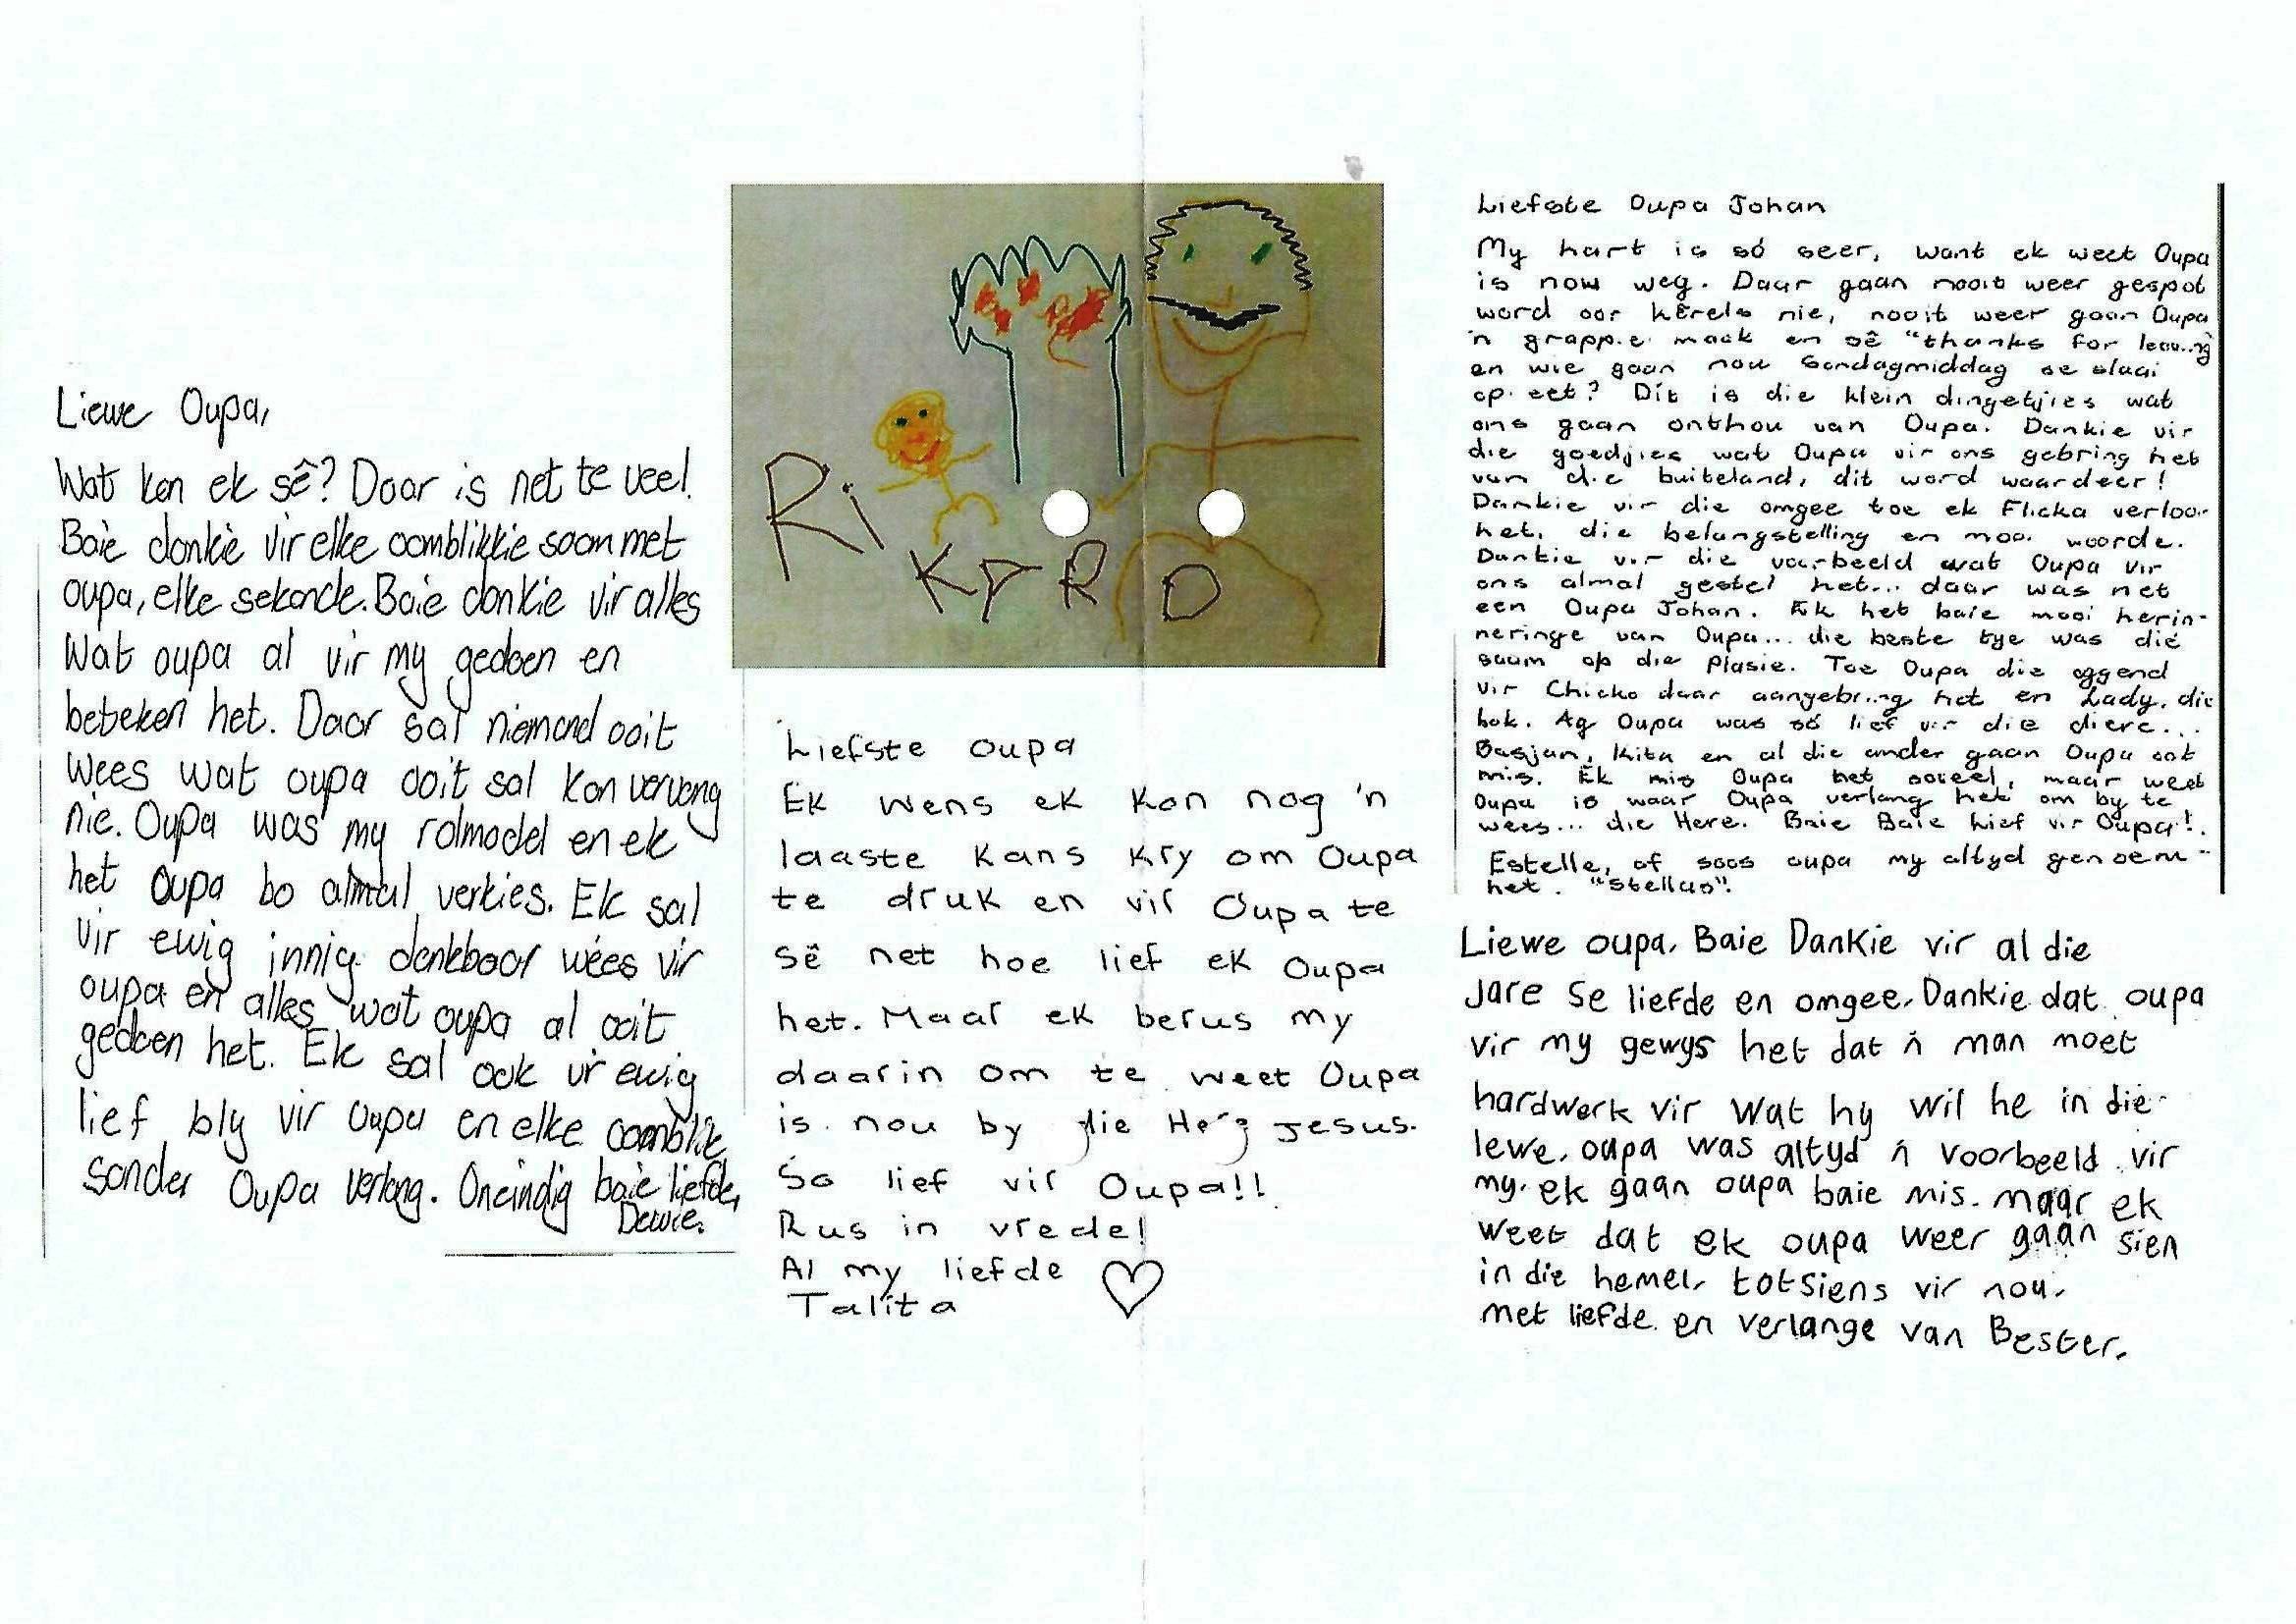 Liewe Oupa,
Wat kan ek sê? Daar is net te veel.
Baie dankie vir elke oomblikkie saam met
oupa, elke sekonde. Baie dankie vir alles
Wat oupa al vir my gedoen en
beteken het. Daar sal niemand ooit
wees wat oupa ooit sal kon vervang
nie. Oupa was my rolmodel en ek
het oupa bo almal verkies. Ek sal
vir ewig innig dankbaar wees vir
oupa en alles wat oupa al ooit
gedoen het. Ek sal ook vir ewig
lief bly vir Oupa en elke oomblik
sonder Oupa verlang. Oneindig baie liefde,
Dewie.
Ri
KrRD
Liefste oupa
Ek wens ek kon nog 'n
laaste kans kry om Oupa
te druk en vir Oupa te
sê net hoe lief ek Oupa
het. Maar ek berus my
daarin om te weet Oupa
is nou by die Jesus.
So lief vir Oupa!!
Rus in vrede!
Al my liefde
Talita
Liefste Oupa Johan
My hart is só seer, want ek weet Oupa
is now weg. Daar gaan nooit weer gespot
word oor kêrels nie, nooit weer gaan Oupa
'n grappie maak en sê "thanks for
en wie gaan nou Sondagmiddag se slaai
op eet? Dít is die klein dingetjies wat
ons gaan onthou van Oupa. Dankie vir
die goedjies wat Oupa vir ons gebring het
van die buiteland, dit word waardeer!
Dankie vir die omgee toe ek Flicka verloor
het, die belangstelling en mooi woorde.
Dankie vir die voorbeeld wat Oupa vir
ons almal gestel het... daar was net
een Oupa Johan. Ek het baie mooi herin-
neringe van Oupa... die beste tye was die
saam op die plasie. Toe Oupa die oggend
vir Chicko daar aangebring het en Lady, die
bok. Ag Oupa was só lief vir die diere...
Basjan, Kita en al die ander gaan Oupa ook
mis. Ek mis Oupa net soveel, maar weet
Oupa is waar Oupa verlang het om by te
wees... die Here. Baie Baie lief vir Oupa!.
Estelle, of soos oupa my altyd genoem -
het. "Stellas".
Liewe oupa. Baie Dankie vir al die
Jare se liefde en omgee. Dankie dat oupa
vir my gewys het dat 'n man moet
hardwerk vir wat hy wil he in die
lewe. oupa was altyd 'n voorbeeld vir
my. ek gaan oupa baie mis. maar ek
weet dat ek oupa weer gaan sien
in die hemel. totsiens vir nou.
met liefde en verlange van Bester.